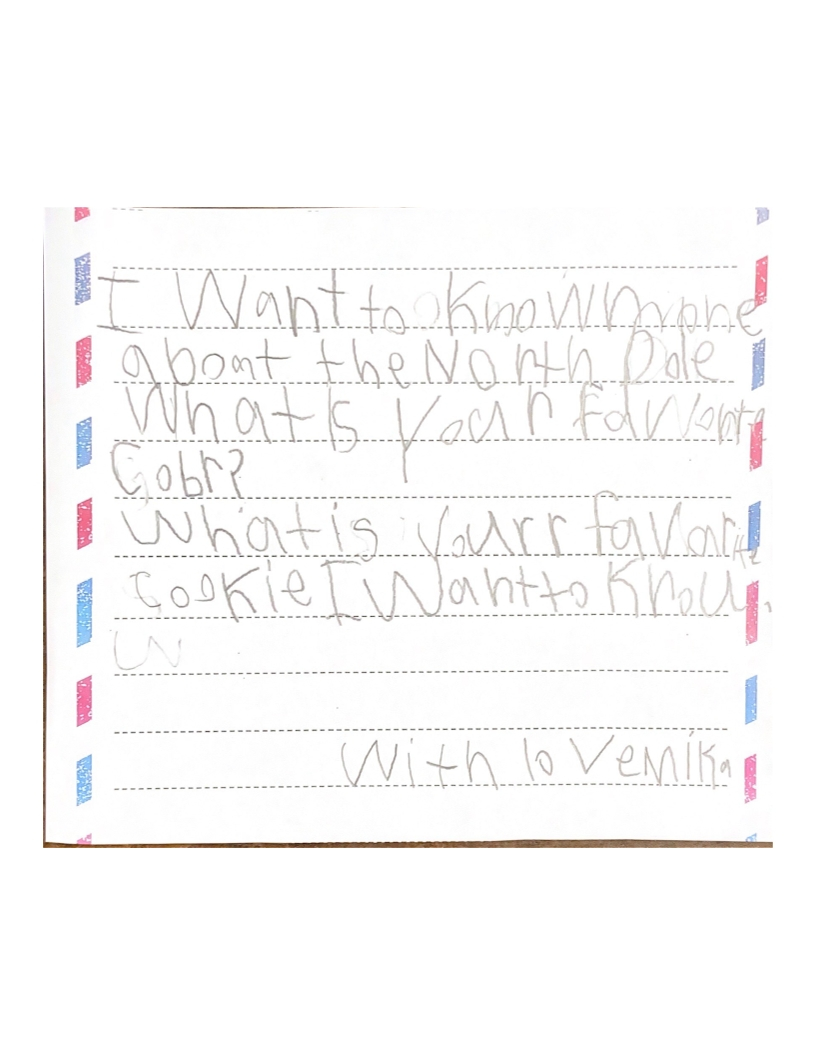 I Want to Know mone
about the North Pole
What Is your favvorite
Colbr?
What is yourr favarite
cookie I Want to Know.
W
With love Mika